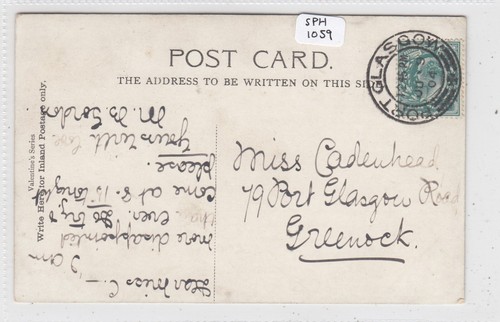 SPH
1059
POST CARD.
THE ADDRESS TO BE WRITTEN ON THIS SI
PORT GLASGOW
JU
04
Valentine's Series
Write Here for Inland Postage only.
Dear Miss C. —
I am
more disappointed
than ever. Do try &
come at 8.15 tonight
please.
Yours with love
M. B. Gordon
Miss Cadenhead
79 Port Glasgow Road
Greenock.